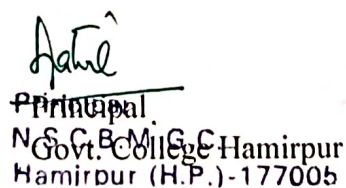 Principal
Principal
N.S.C.B.M. G.C.
Govt. College Hamirpur
Hamirpur (H.P.)-177005